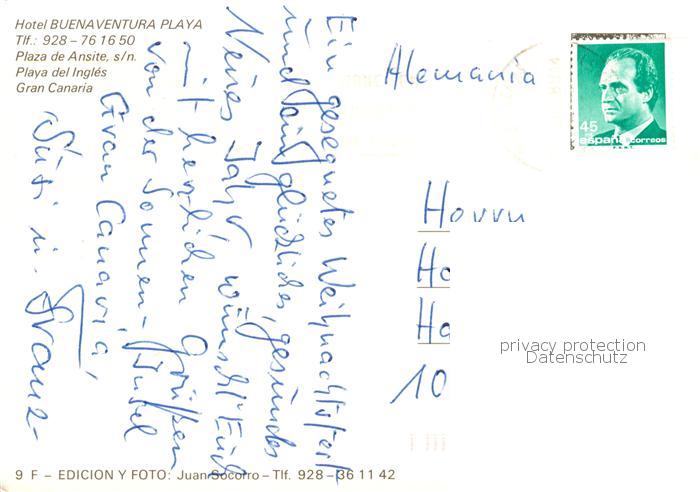 Hotel BUENAVENTURA PLAYA
Tlf.: 928 - 76 16 50
Plaza de Ansite, s/n.
Playa del Inglés
Gran Canaria
Ein gesegnetes Weihnachtsfest
und ein glückliches, gesundes
Neues Jahr wünscht Euch
mit herzlichen Grüßen
von der Sonnen-Insel
Gran Canaria
Susi u. Franz-
Alemania
45
españa correos
Herrn
Ho
Ho
10
privacy protection
Datenschutz
9 F - EDICION Y FOTO: Juan Socorro - Tlf. 928 - 36 11 42